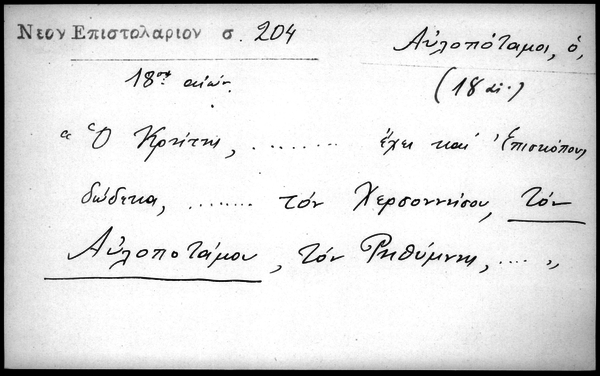 Νεον Επιστολαριον σ. 204
Αὐλοπόταμοι, ὁ,
18ος αἰών.
(18 αἰ.)
"Ὁ Κρήτης, ........ ἔχει καί Ἐπισκόπους
δώδεκα, ........ τόν Χερσοννήσου, τόν
Αὐλοποτάμου, τόν Ρηθύμνης, .... "